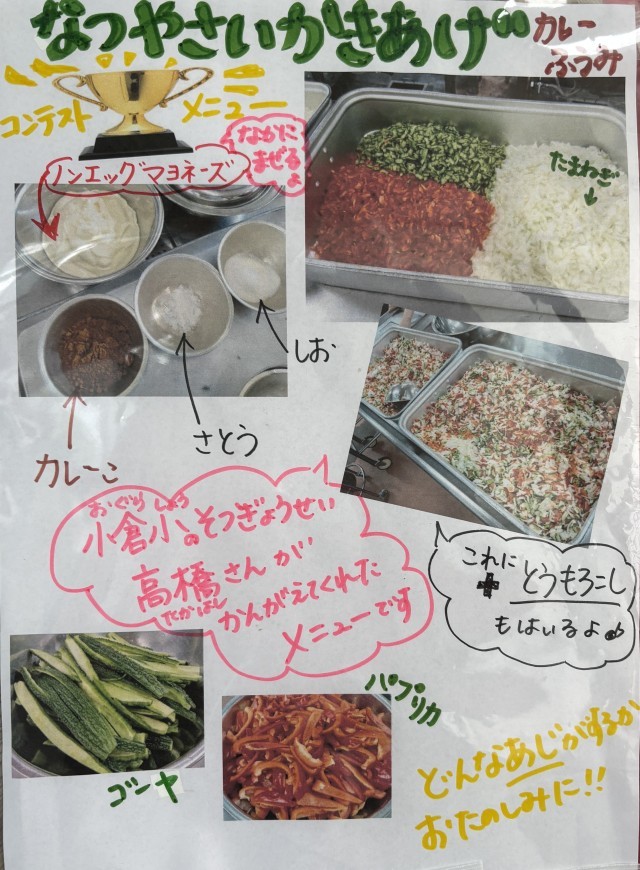 なつやさいかきあげ
カレー
ふうみ
コンテスト
メニュー
なかに
まぜる
よ
ノンエッグマヨネーズ
たまねぎ
しお
さとう
カレーこ
おぐりしょう
小倉小のそつぎょうせい
高橋さんが
たかはし
かんがえてくれた
メニューです
これに
+ とうもろこし
もはいるよ
パプリカ
ゴーヤ
どんなあじがするか
おたのしみに!!